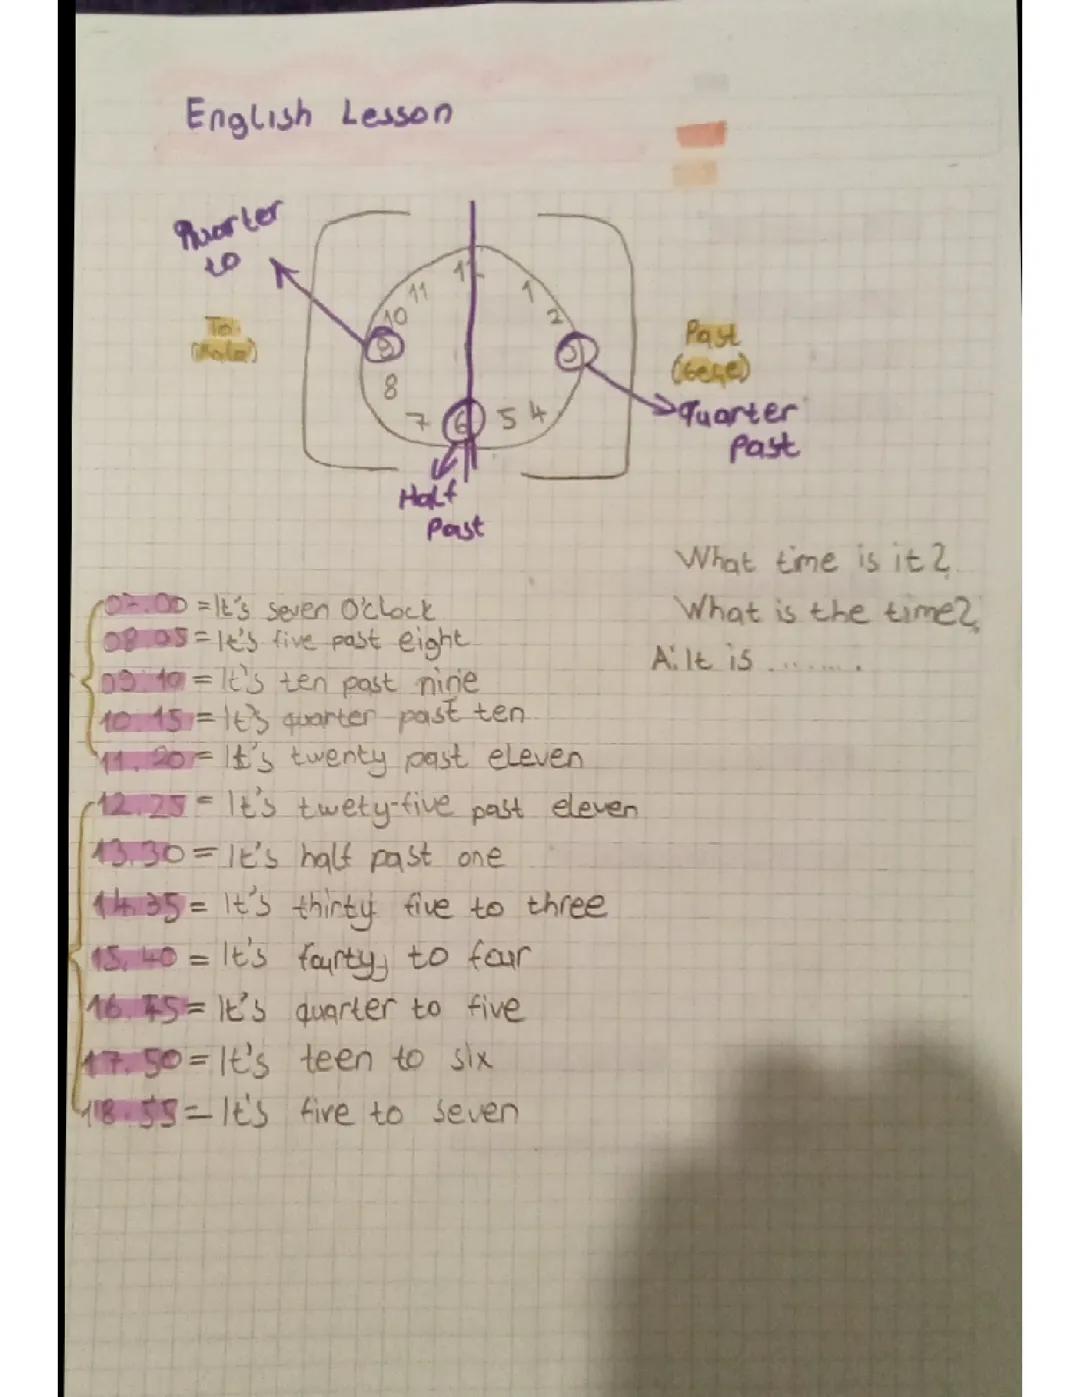 English Lesson
Quarter
to
11
1
10
2
9
3
8
7
6
5
4
To
(Kala)
Past
(Geçe)
Quarter
Past
Half
Past
What time is it?
What is the time?
A: It is ........
07.00 = It's seven O'clock
08.05 = It's five past eight
09.10 = It's ten past nine
10.15 = It's quarter past ten
11.20 = It's twenty past eleven
12.25 = It's twety-five past eleven
13.30 = It's half past one
14.35 = It's thirty five to three
15.40 = It's fourty to four
16.45 = It's quarter to five
17.50 = It's teen to six
18.55 = It's five to seven